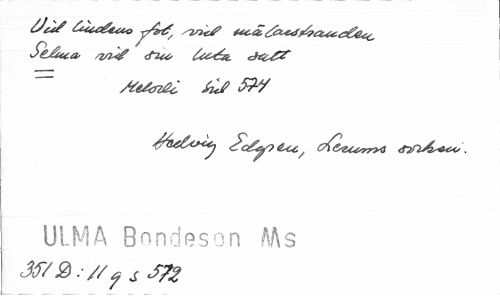 Vid lindens fot, vid mälarstranden
Selma vid sin luta satt
Melodi sid 574
Hedvig Edgren, Lerums socken.
ULMA Bondeson Ms
351 D: 11 g s 572